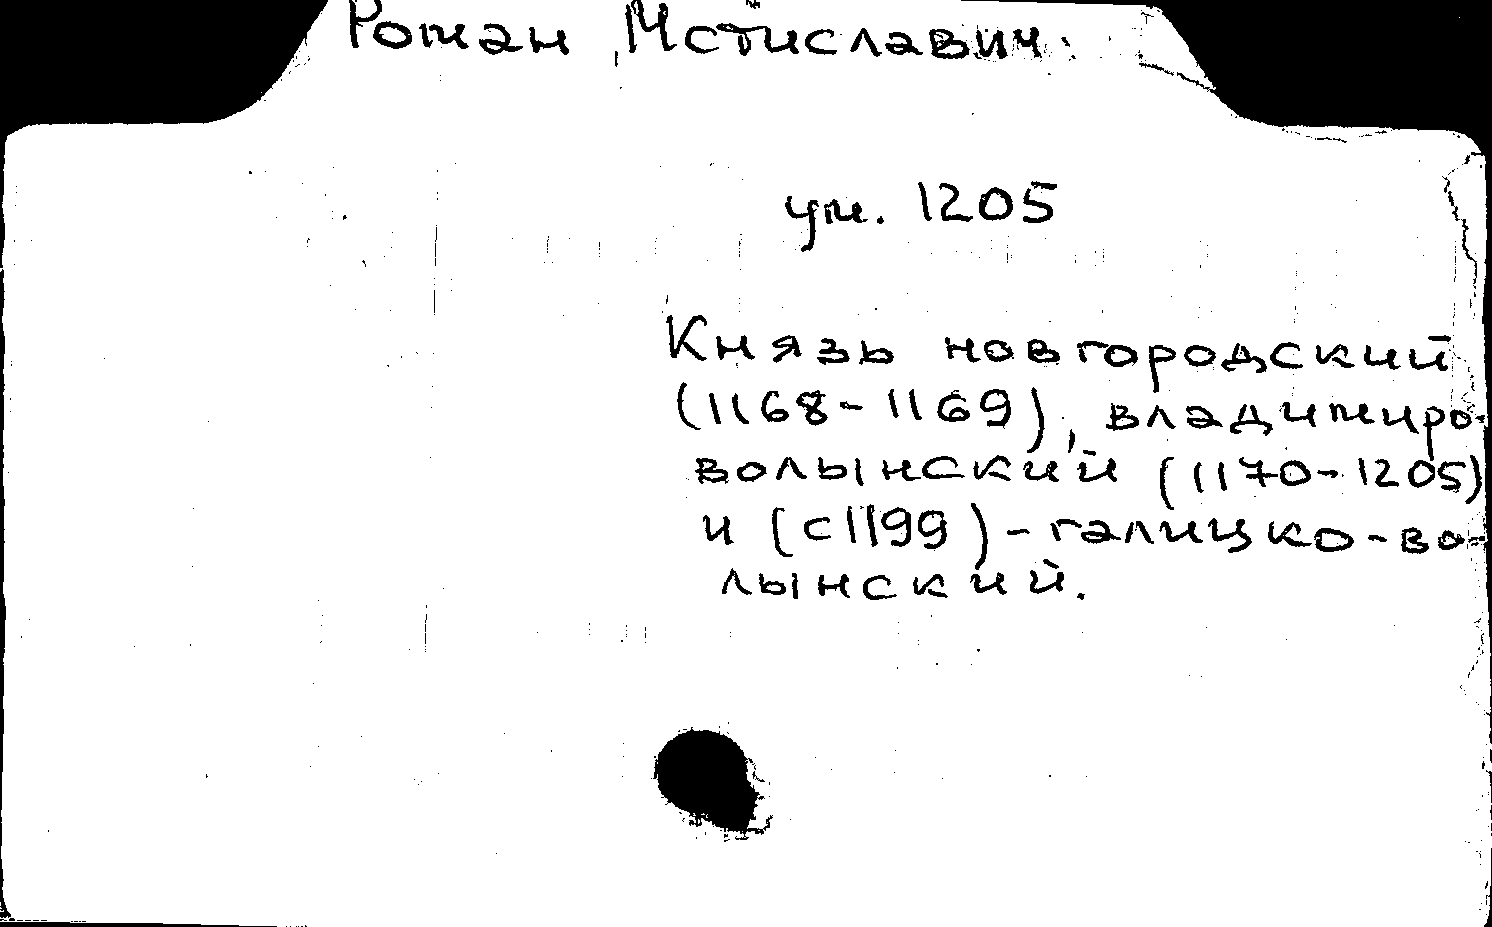 Роман Мстиславич.
ум. 1205
Князь новгородский
(1168-1169), владимиро-
волынский (1170-1205)
и (с 1199) - галицко-во-
лынский.